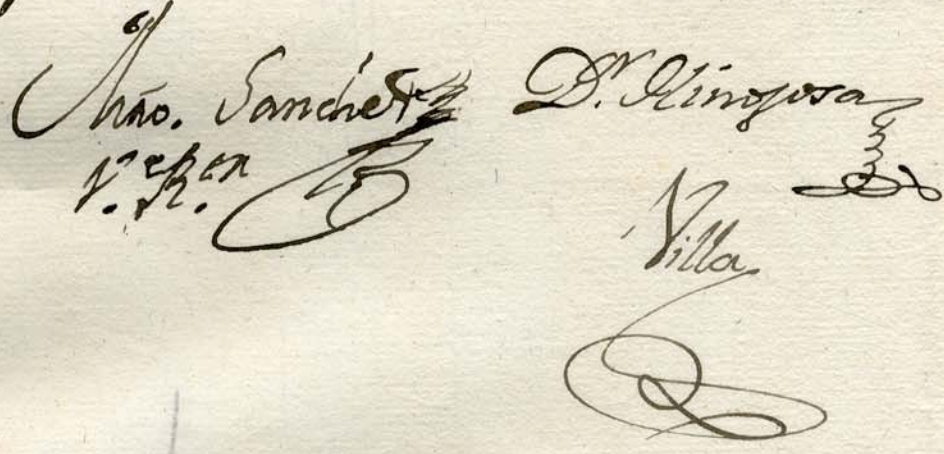 Sanchez Dr. Hinojosa
V.e R.en
Villa